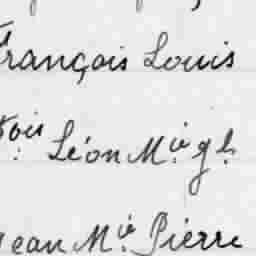 François Louis
Léon M.ie gh.
Jean M.ie Pierre